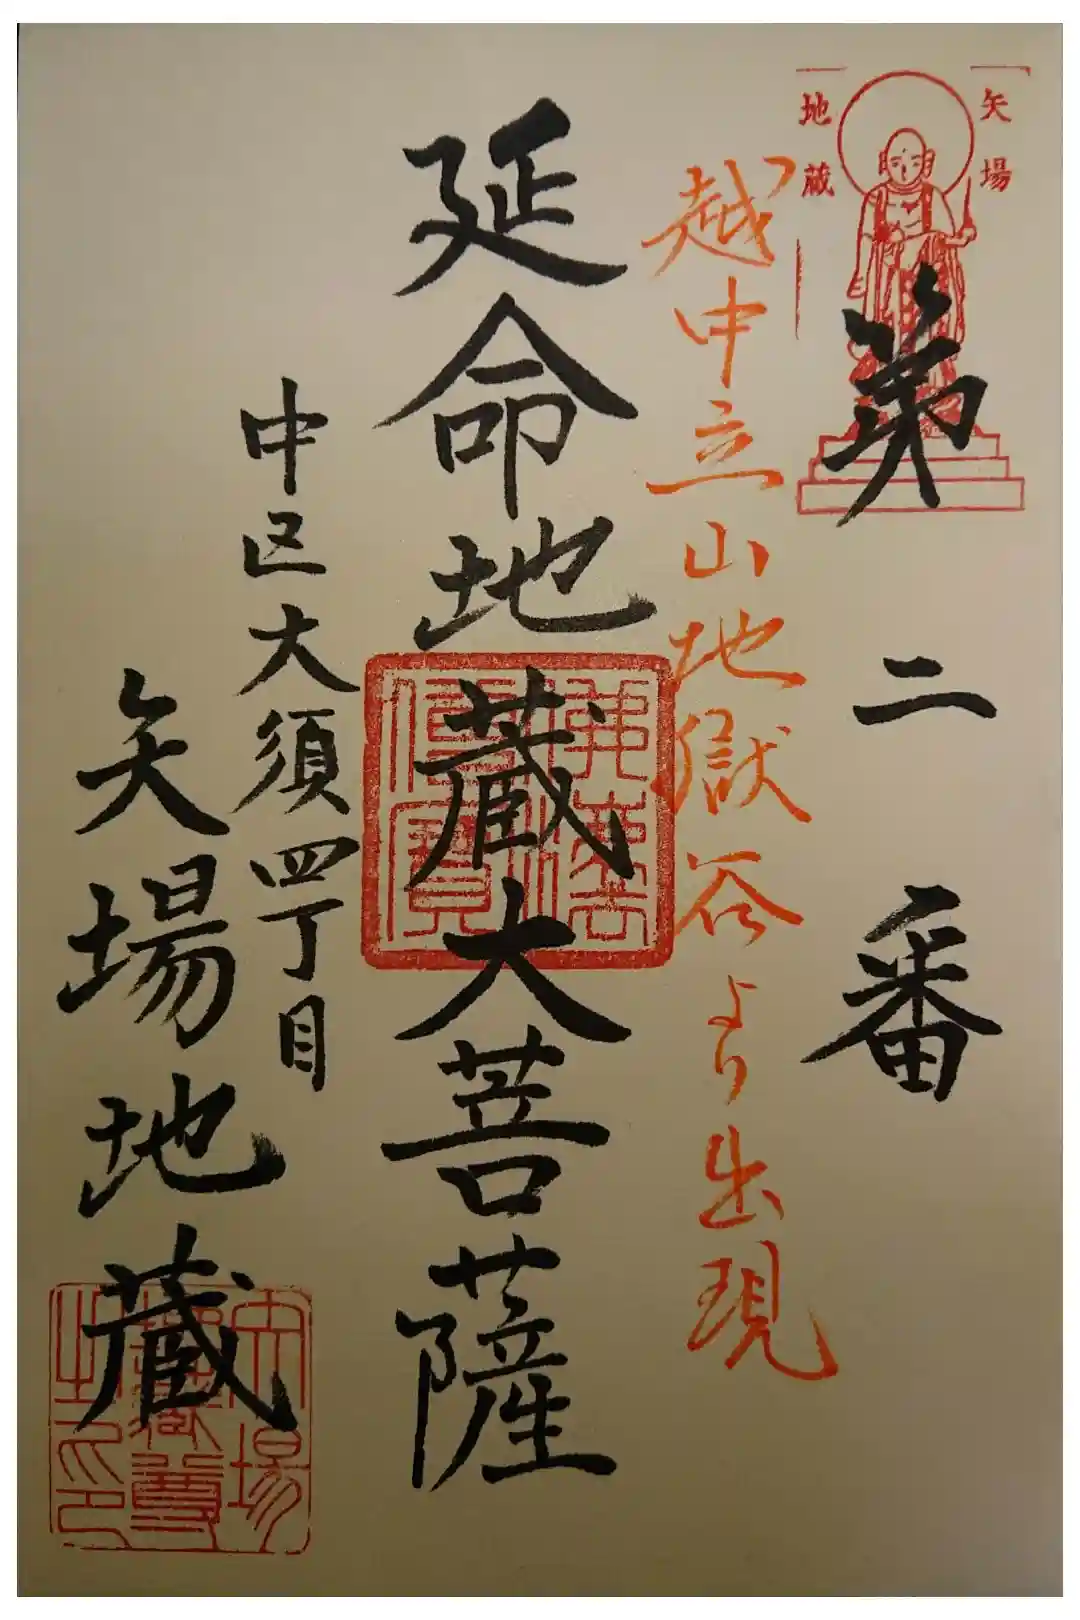 矢場
地蔵
第二番
越中立山地獄谷より出現
延命地蔵大菩薩
中区大須四丁目
矢場地蔵
佛法僧寶